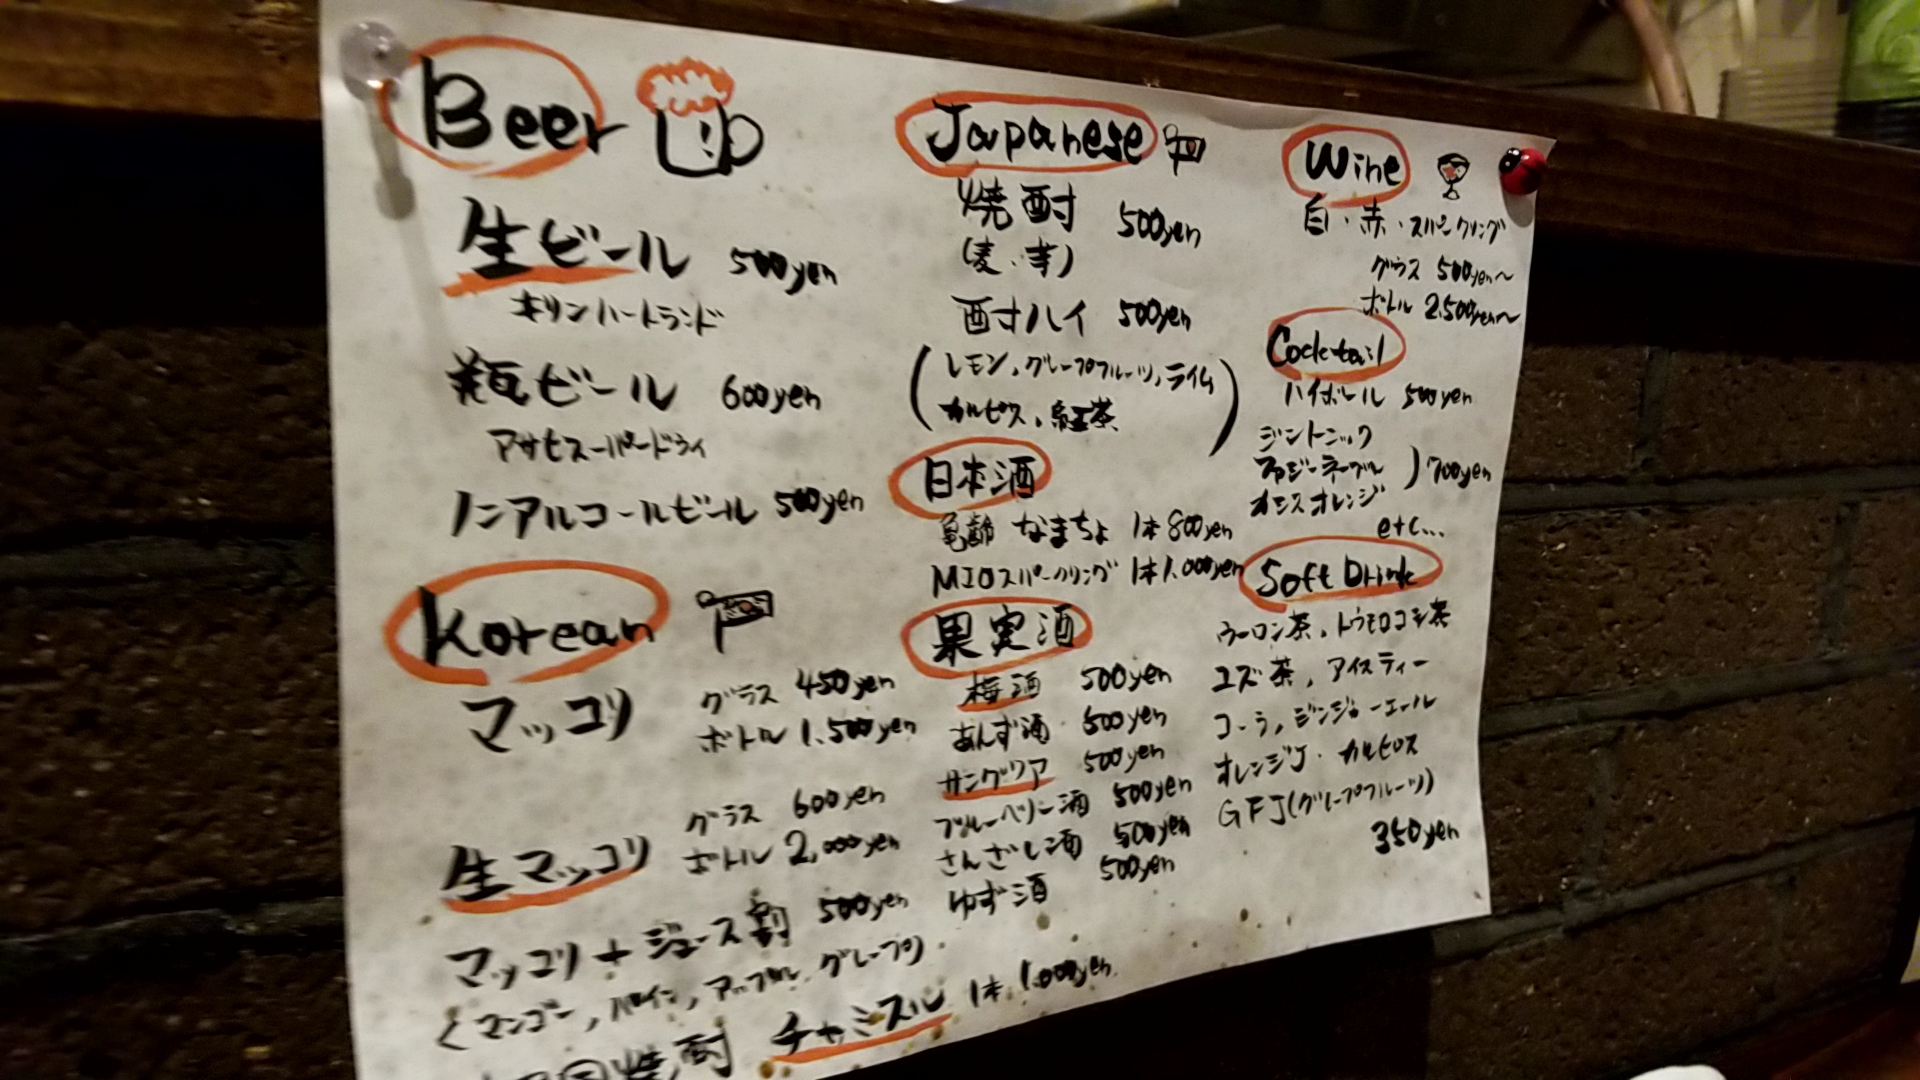 Beer
生ビール 500yen
キリンハートランド
瓶ビール 600yen
アサヒスーパードライ
ノンアルコールビール 500yen
Korean
マッコリ グラス 450yen
ボトル 1,500yen
生マッコリ グラス 600yen
ボトル 2,000yen
マッコリ+ジュース割 500yen
マンゴー, パイン, アップル, グレープ
焼酎 チャミスル 1本 1,000yen
Japanese
焼酎 500yen
(麦、芋)
酎ハイ 500yen
(レモン, グレープフルーツ, ライム
カルピス, 紅茶)
日本酒
亀齢 なまちょ 1本 800yen
MIOスパークリング 1本 1,000yen
果実酒
梅酒 500yen
あんず酒 500yen
サングリア 500yen
ブルーベリー酒 500yen
さんざし酒 500yen
ゆず酒 500yen
Wine
白・赤・スパークリング
グラス 500yen〜
ボトル 2,500yen〜
Cocktail
ハイボール 500yen
ジントニック
ファジーネーブル ) 700yen
オレンジ
etc...
Soft Drink
ウーロン茶, トウモロコシ茶
ユズ茶, アイスティー
コーラ, ジンジャーエール
オレンジJ・カルピス
GFJ(グレープフルーツ)
350yen